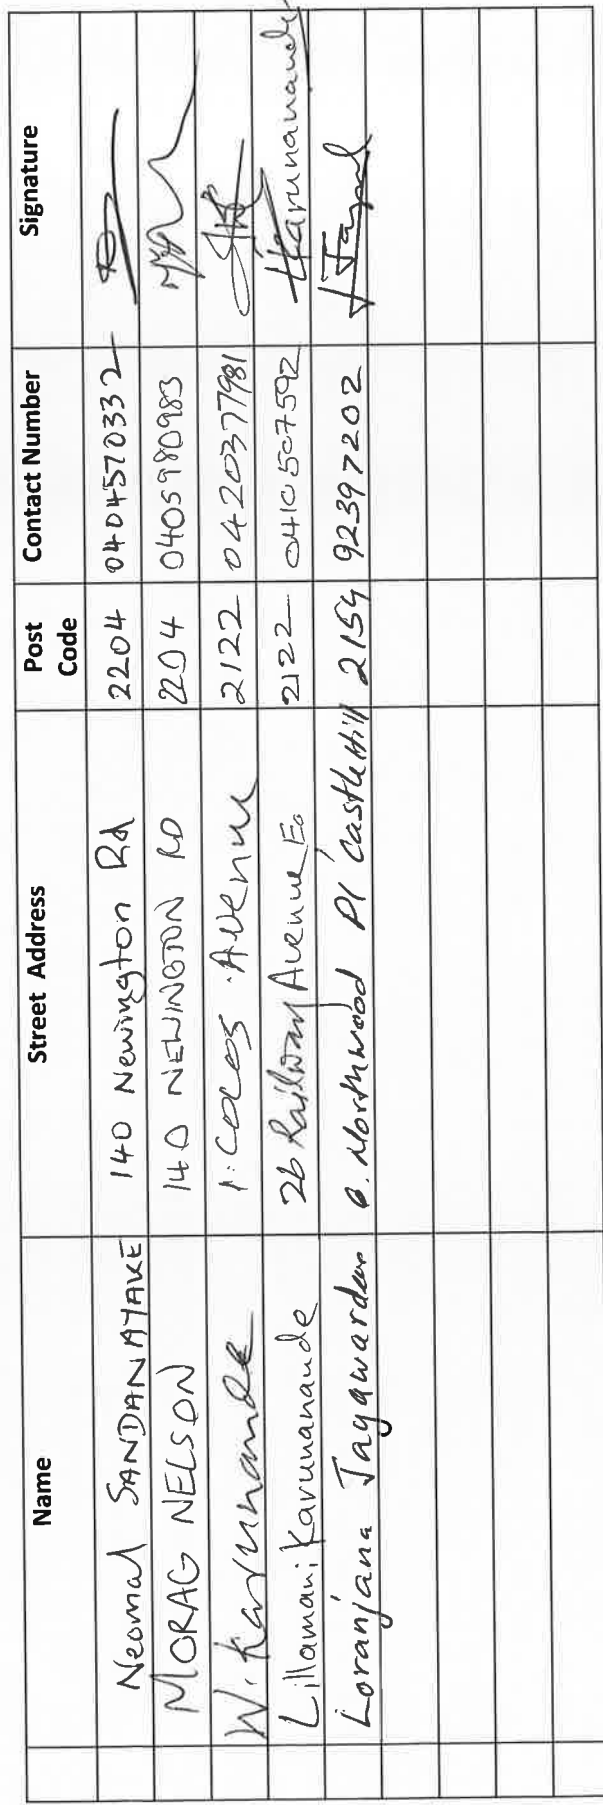 Name Street Address Post Code Contact Number Signature
Neomal SANDANAYAKE 140 Newington Rd 2204 0404570332
MORAG NELSON 140 NEWINGTON RD 2204 0405980983
W. Karunande 1. COCOS Avenue 2122 0420377981
Lillamani Karunanande 26 Railway Avenue E. 2122 0410507592 Karunanande
Loranjana Jayawardan 6. Northwood Pl Castle Hill 2154 92397202